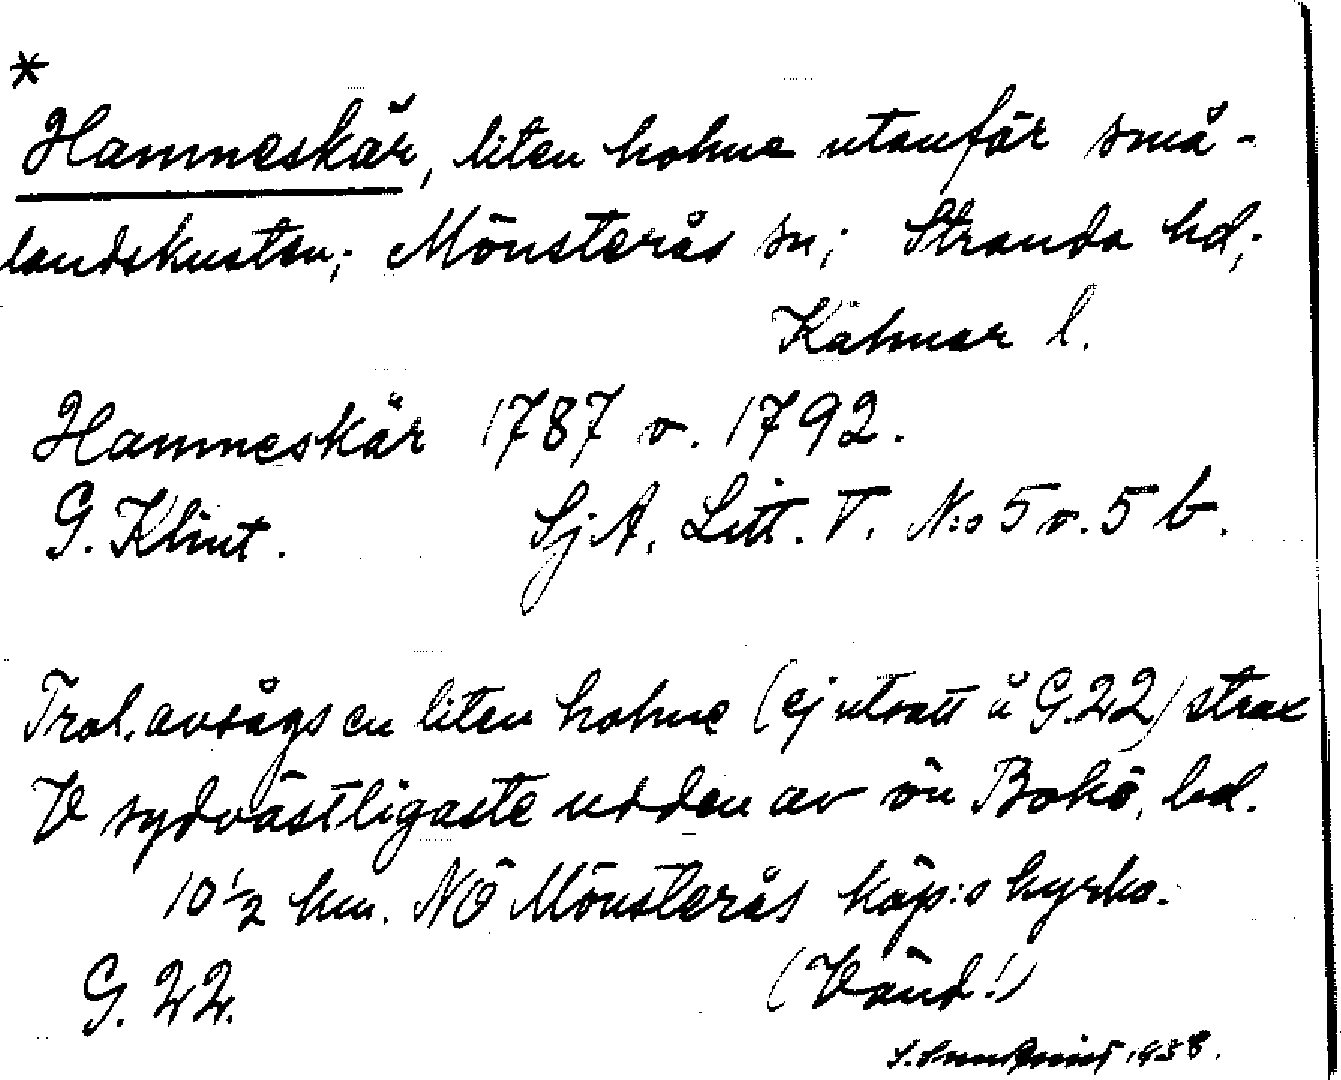 *
Hamneskär, liten holme utanför små-
landskusten; Mönsterås sn; Stranda hd;
Kalmar l.
Hamneskär 1787 o. 1792.
G. Klint. SjA. Litt. T. N:o 5 o. 5 b.
Trol. avsågs en liten holme (ej utsatt å G.22) strax
V sydvästligaste udden av ön Bokö, bel.
10 1/2 km. NÖ Mönsterås köp:s kyrka.
G. 22. (Vänd!)
1938.